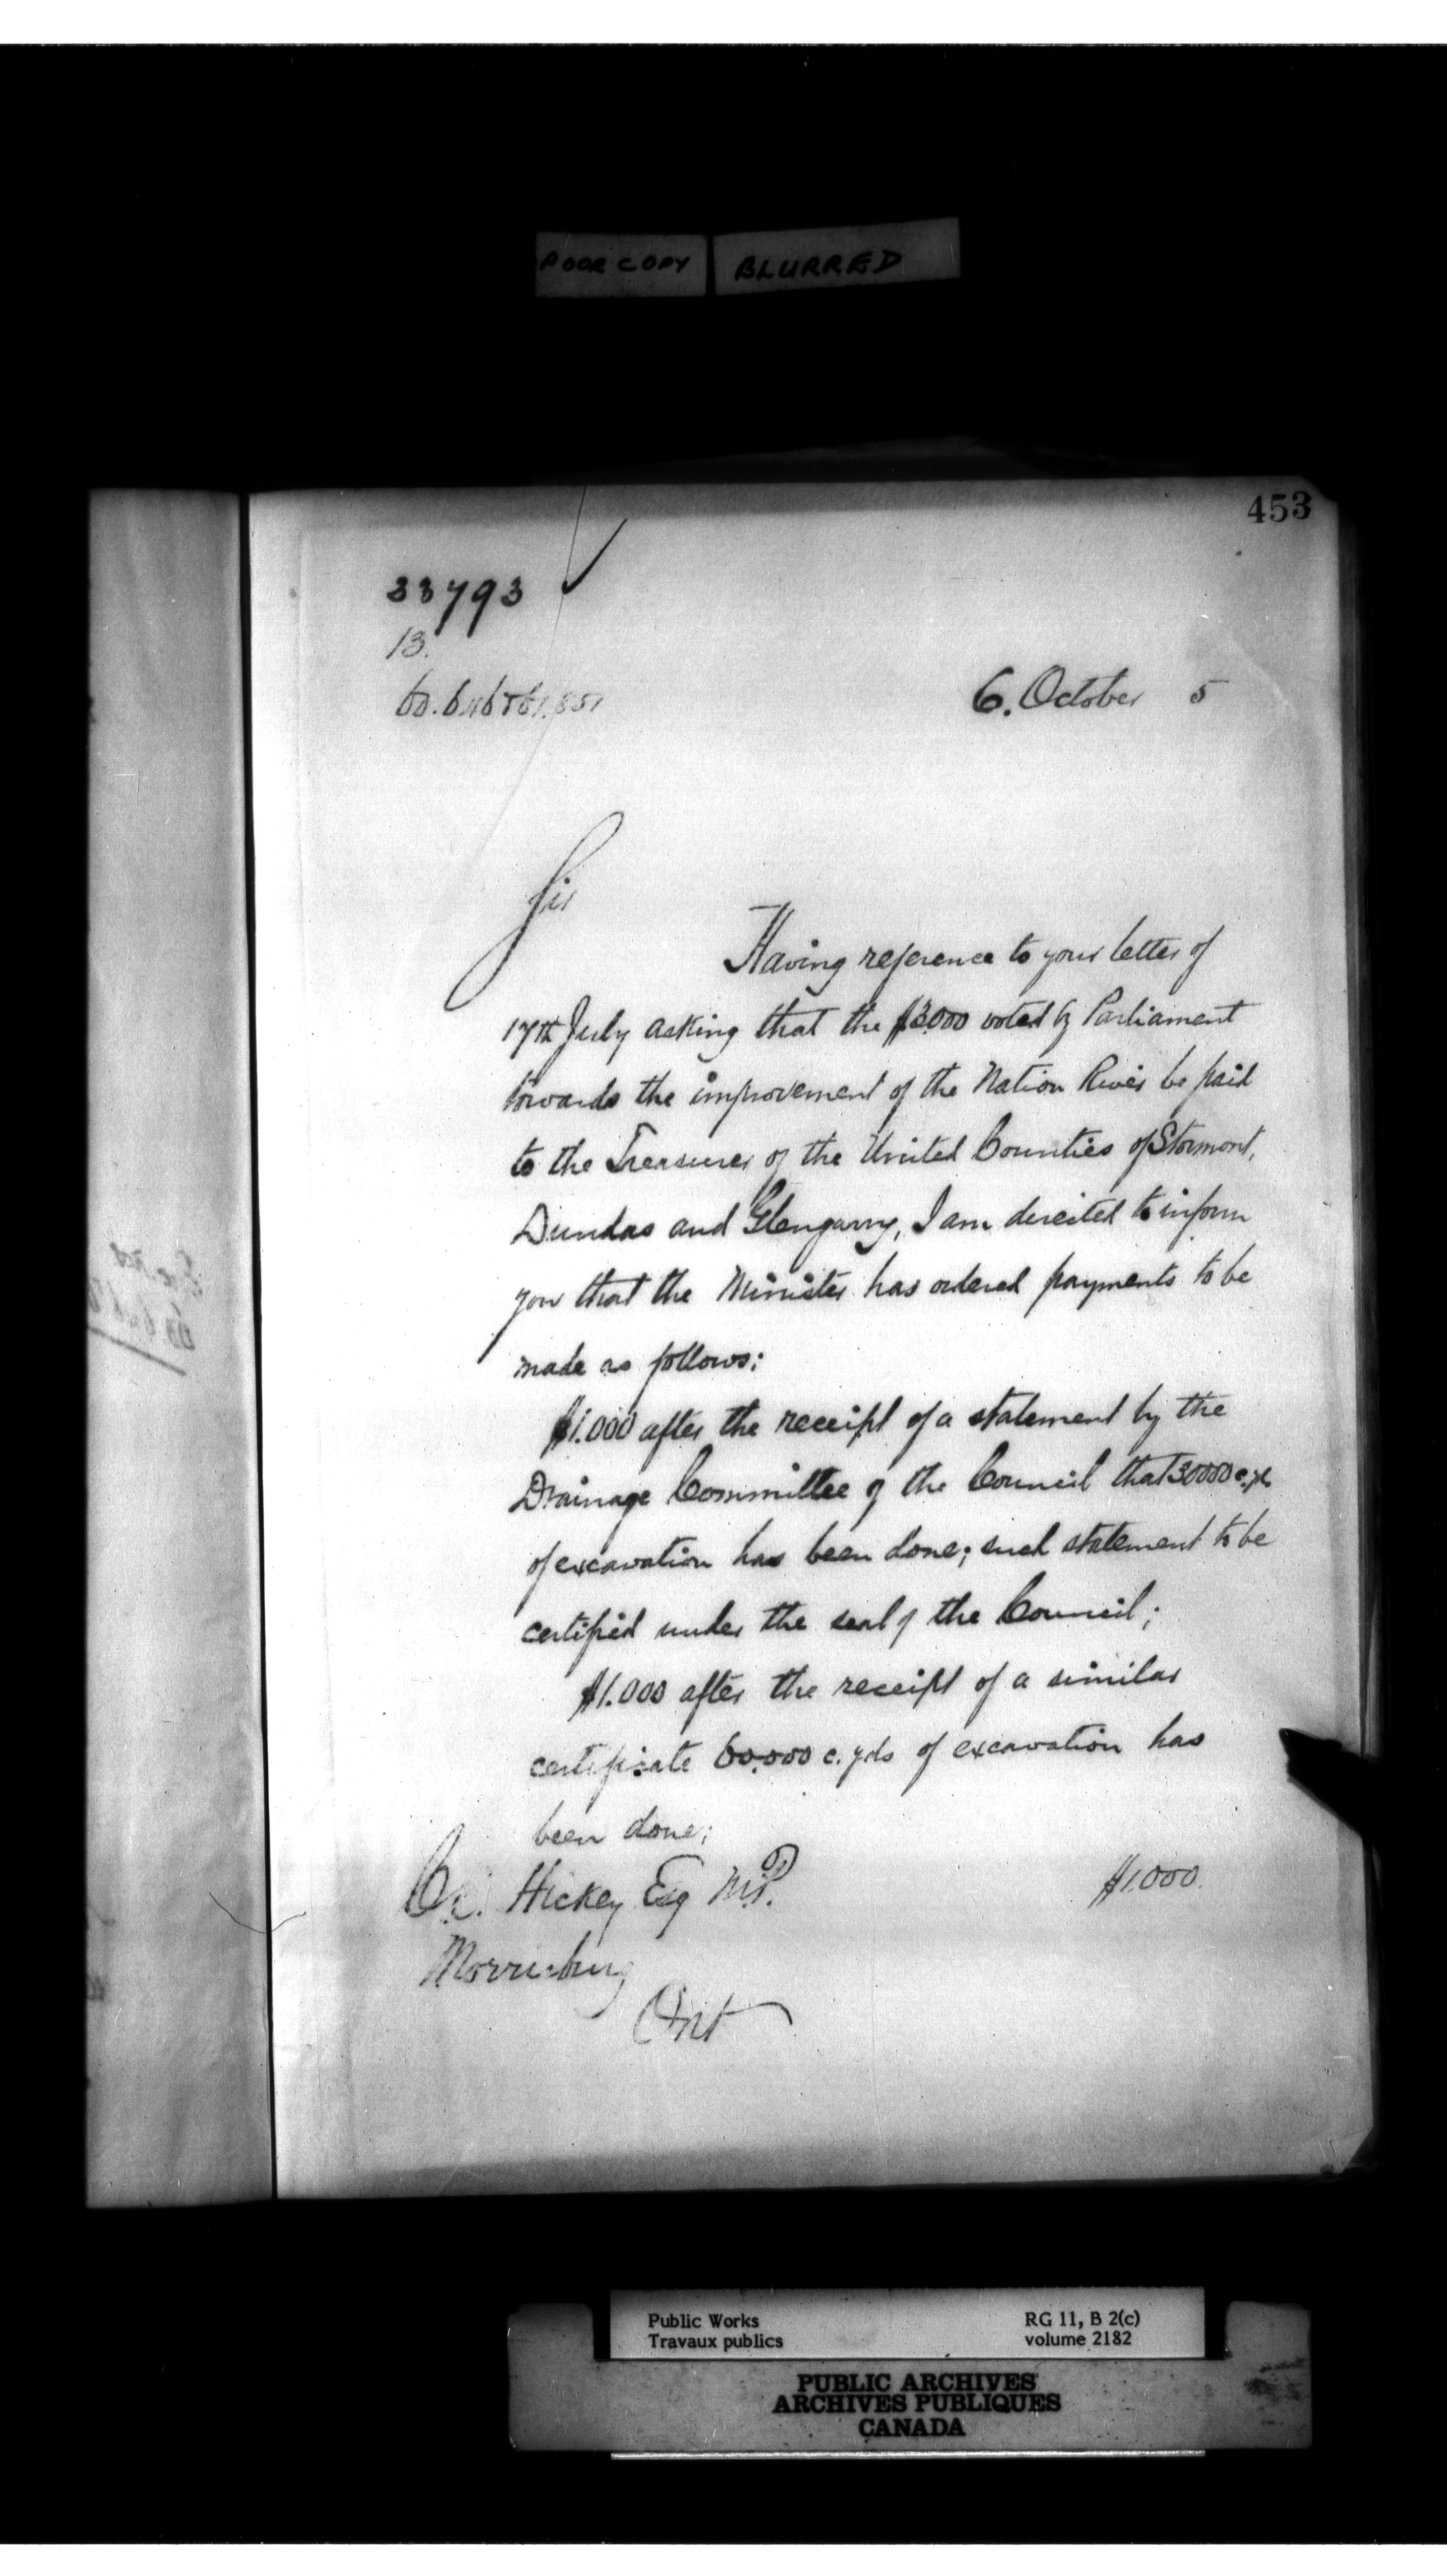 POOR COPY BLURRED
453
33793
13.
6. October 5
Sir
Having reference to your letter of
17th July asking that the $3.000 voted by Parliament
towards the improvement of the Nation River be paid
to the Treasurer of the United Counties of Stormont,
Dundas and Glengarry, I am directed to inform
you that the Minister has ordered payments to be
made as follows:
$1.000 after the receipt of a statement by the
Drainage Committee of the Council that 30000 c. yds
of excavation has been done; such statement to be
certified under the seal of the Council;
$1.000 after the receipt of a similar
certificate 60,000 c. yds of excavation has
been done;
$1.000.
Hickey Esq M.P.
Morrisburg
Ont
Public Works RG 11, B 2(c)
Travaux publics volume 2182
PUBLIC ARCHIVES
ARCHIVES PUBLIQUES
CANADA